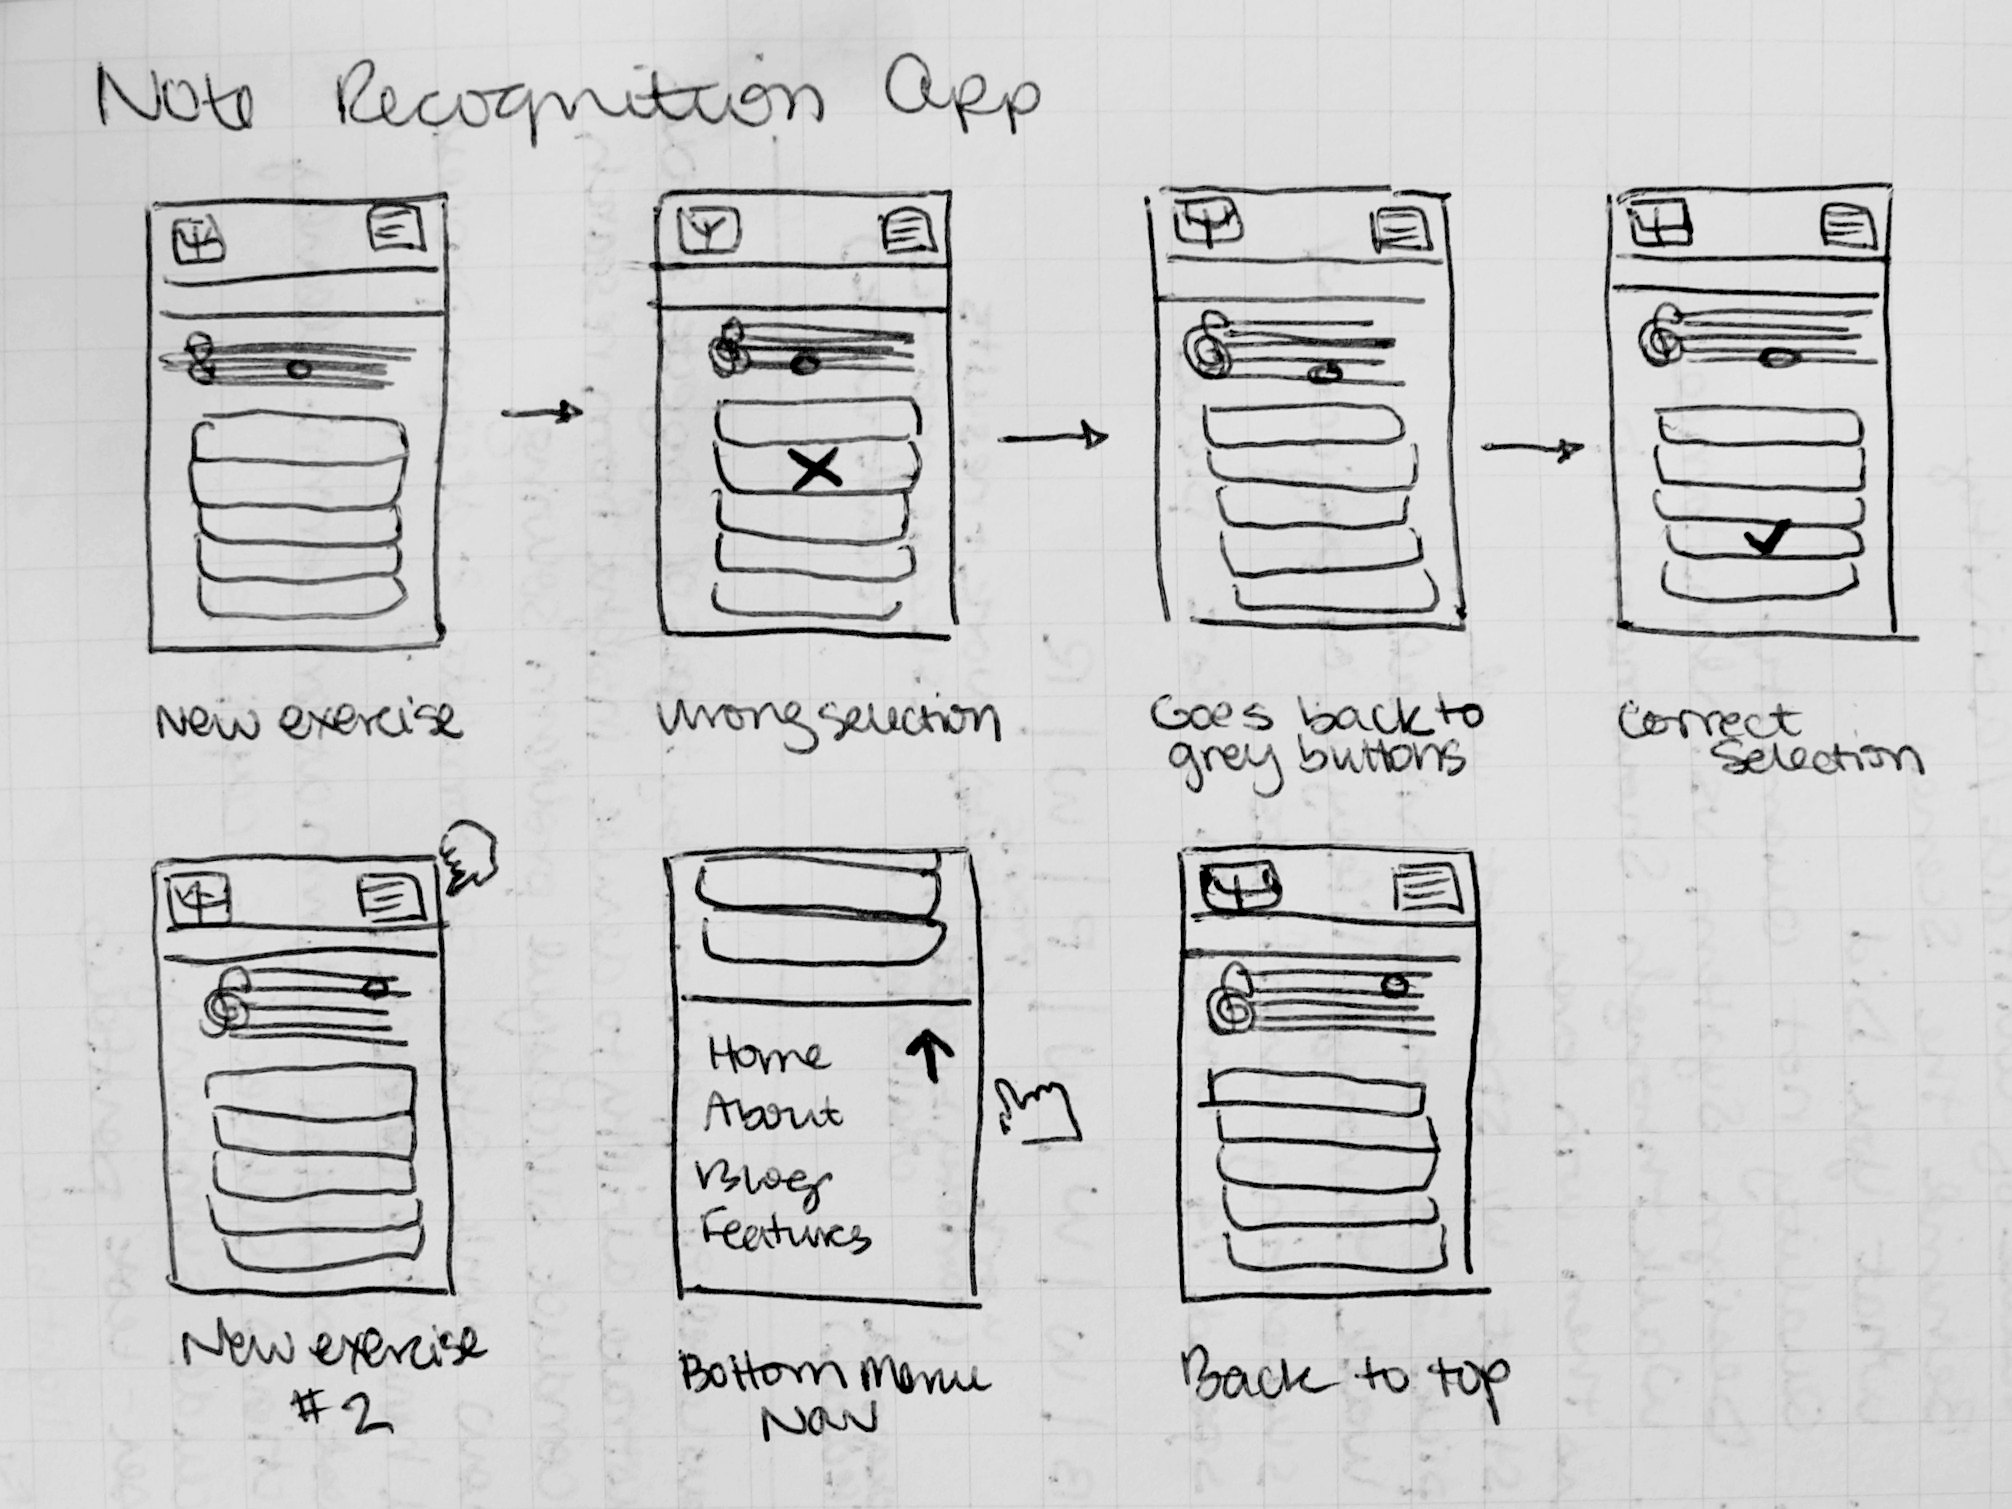 Note Recognition App
New exercise
Wrong selection
Goes back to
grey buttons
Correct
Selection
Home
About
Blog
Features
New exercise
#2
Bottom Menu
Nav
Back to top